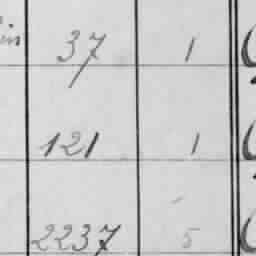 37 1
121 1
2237 5